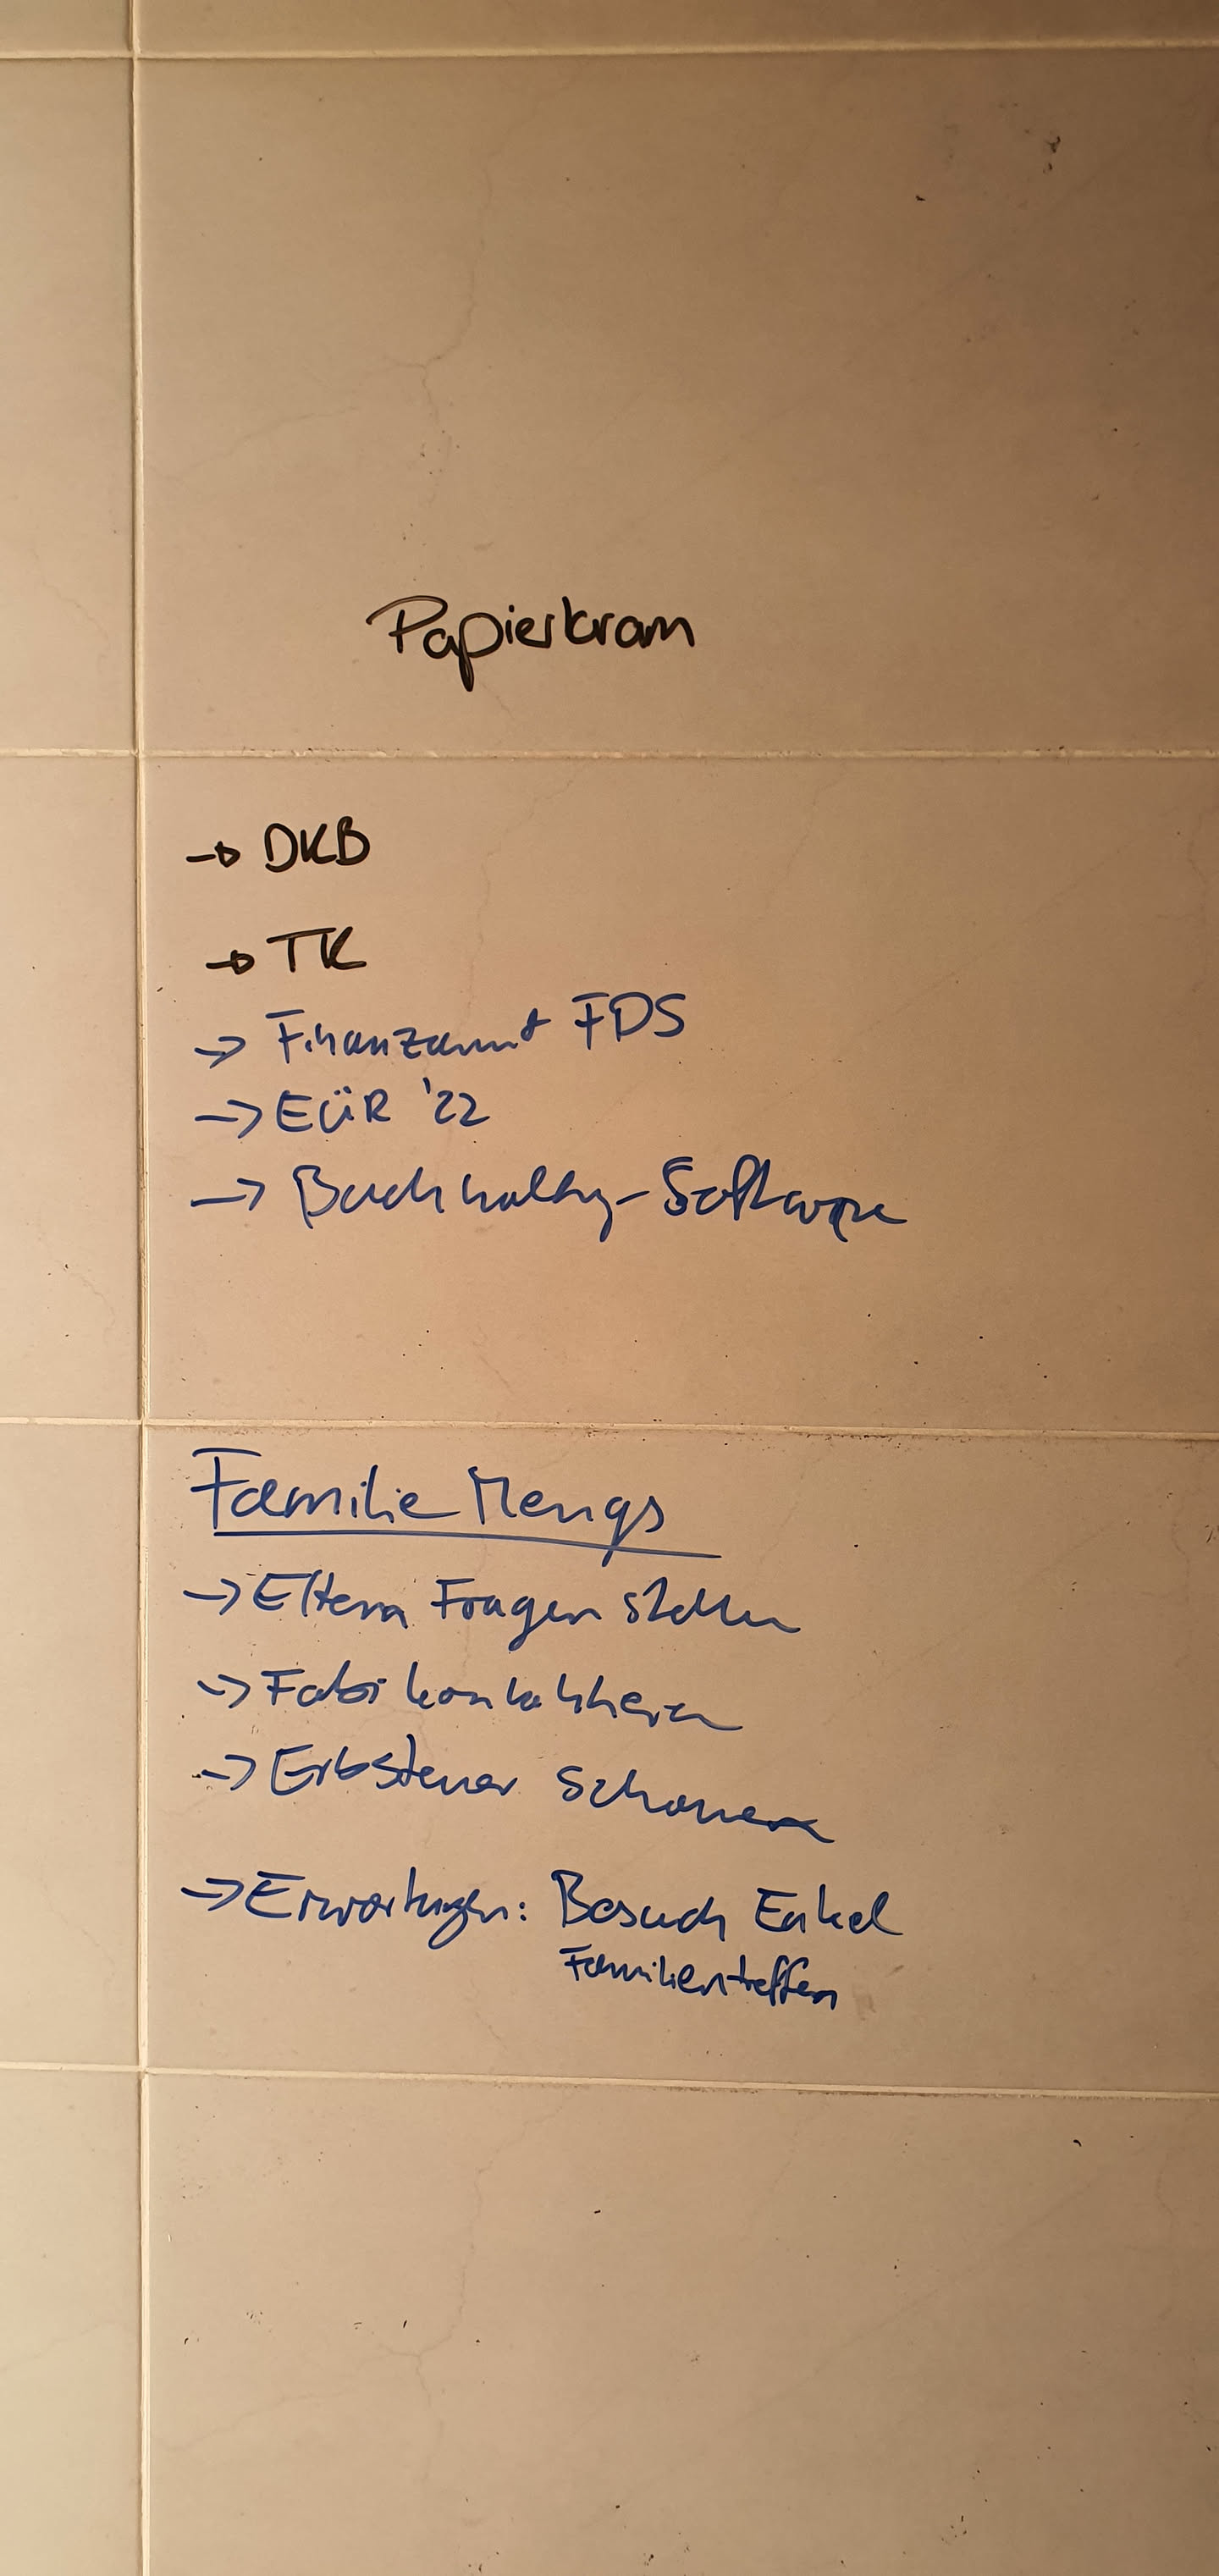 Papierkram
→ DKB
→ TK
→ Finanzamt FDS
→ EÜR '22
→ Buchhaltg-Software
Familie Mengs
→ Eltern Fragen stellen
→ Fabi kontaktieren
→ Erbsteuer schauen
→ Erwartungen: Besuch Enkel
Familientreffen